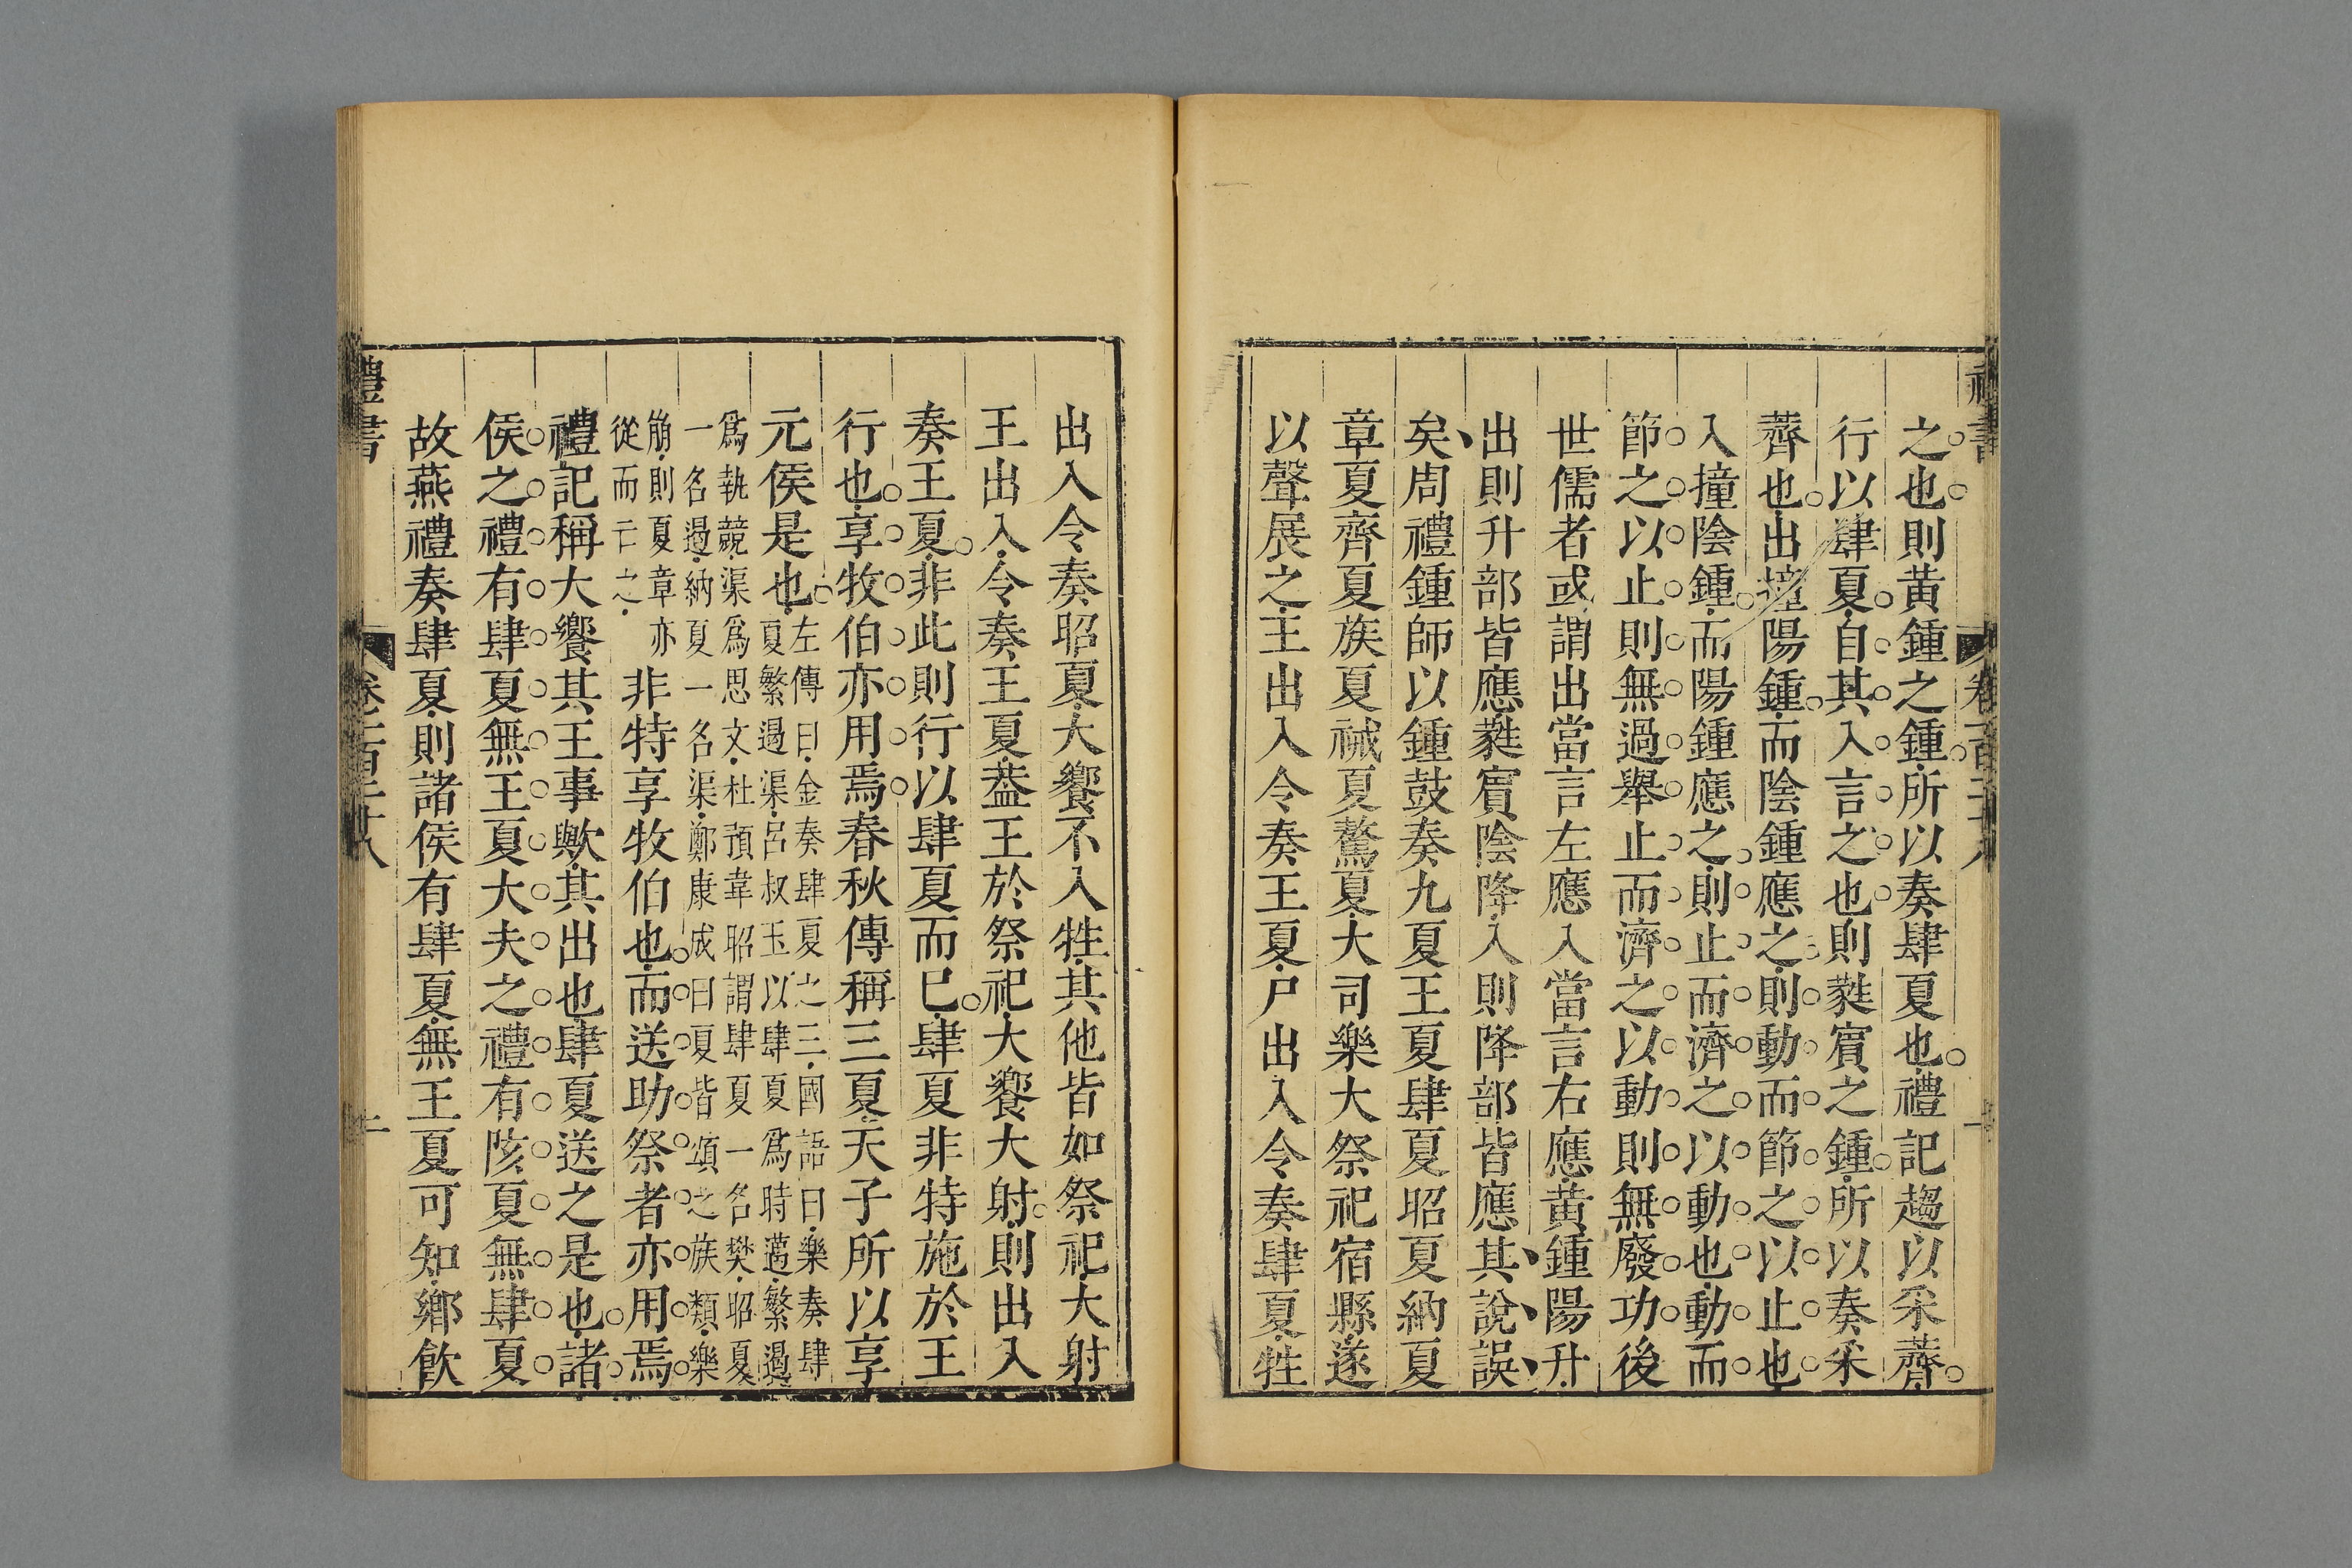 之也則黃鍾之鍾所以奏肆夏也禮記趨以采薺
行以肆夏自其入言之也則蕤賓之鍾所以奏采
薺也出撞陽鍾而陰鍾應之則動而節之以止也
入撞陰鍾而陽鍾應之則止而濟之以動也動而
節之以止則無過舉止而濟之以動則無廢功後
世儒者或謂出當言左應入當言右應黃鍾陽升
出則升部皆應蕤賓陰降入則降部皆應其說誤
矣周禮鍾師以鍾鼓奏九夏王夏肆夏昭夏納夏
章夏齊夏族夏祴夏驁夏大司樂大祭祀宿縣遂
以聲展之王出入令奏王夏尸出入令奏肆夏牲
出入令奏昭夏大饗不入牲其他皆如祭祀大射
王出入令奏王夏葢王於祭祀大饗大射則出入
奏王夏非此則行以肆夏而已肆夏非特施於王
行也享牧伯亦用焉春秋傳稱三夏天子所以享
元侯是也
左傳曰金奏肆夏之三國語曰樂奏肆
夏繁遏渠呂叔玉以肆夏爲時邁繁遏
爲執競渠爲思文杜預韋昭謂肆夏一名樊昭夏
一名遏納夏一名渠鄭康成曰夏皆頌之族類樂
崩則夏章亦
從而亡之
非特享牧伯也而送助祭者亦用焉
禮記稱大饗其王事歟其出也肆夏送之是也諸
侯之禮有肆夏無王夏大夫之禮有陔夏無肆夏
故燕禮奏肆夏則諸侯有肆夏無王夏可知鄉飮
禮書